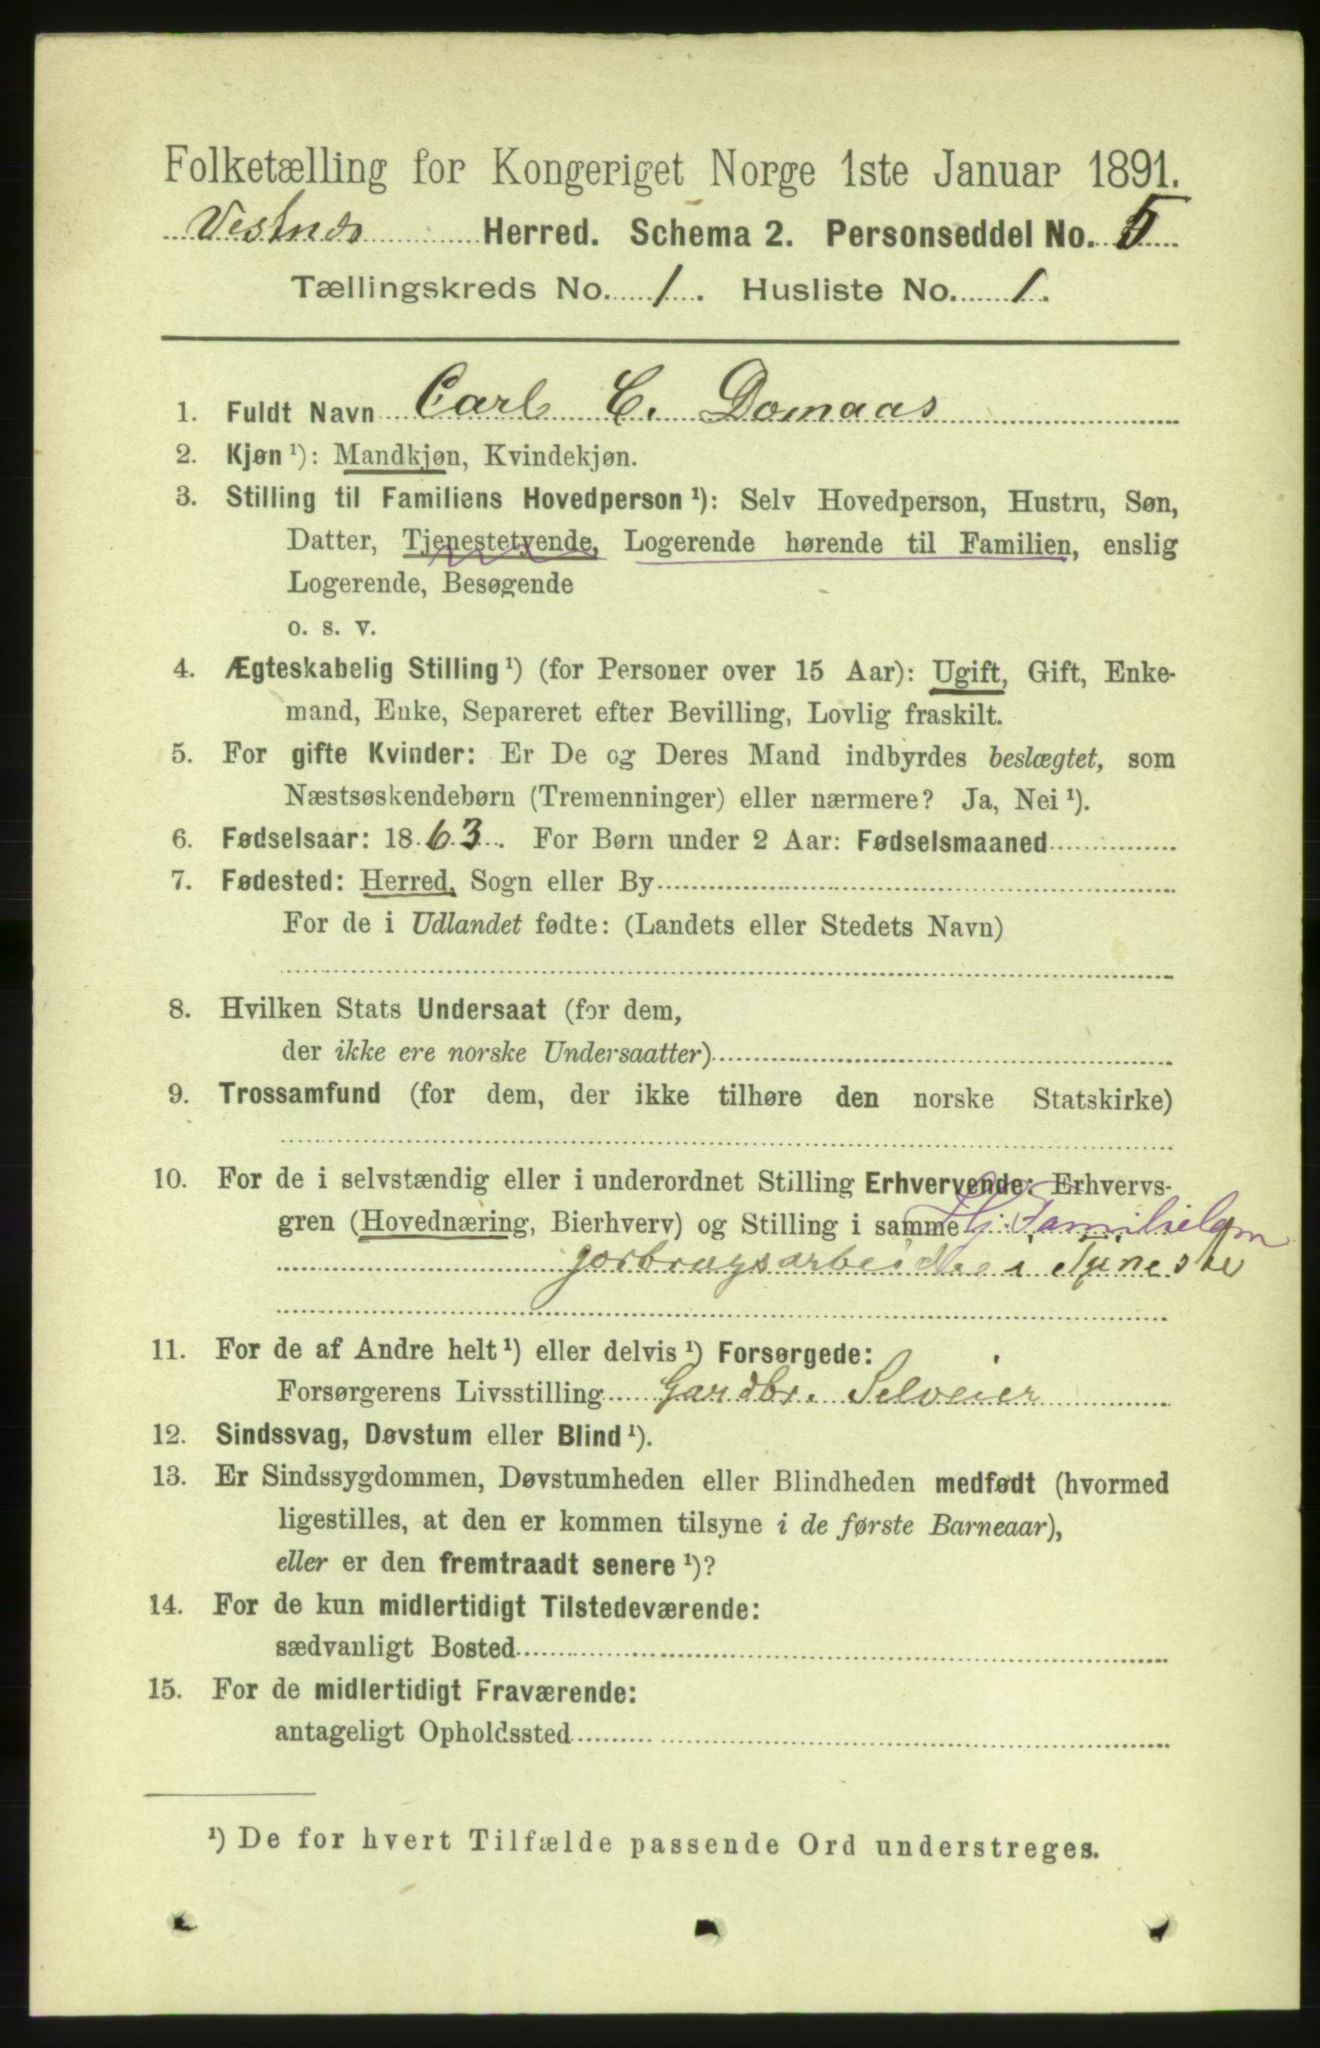 Folketælling for Kongeriget Norge 1ste Januar 1891.
Vestnes Herred. Schema 2. Personseddel No. 5
Tællingskreds No. 1. Husliste No. 1.
1. Fuldt Navn Carl C. Domaas
2. Kjøn ¹): Mandkjøn, Kvindekjøn.
3. Stilling til Familiens Hovedperson ¹): Selv Hovedperson, Hustru, Søn,
Datter, Tjenestetyende, Logerende hørende til Familien, enslig
Logerende, Besøgende
o. s. v.
4. Ægteskabelig Stilling ¹) (for Personer over 15 Aar): Ugift, Gift, Enke-
mand, Enke, Separeret efter Bevilling, Lovlig fraskilt.
5. For gifte Kvinder: Er De og Deres Mand indbyrdes beslægtet, som
Næstsøskendebørn (Tremenninger) eller nærmere? Ja, Nei ¹).
6. Fødselsaar: 1863. For Børn under 2 Aar: Fødselsmaaned
7. Fødested: Herred, Sogn eller By
For de i Udlandet fødte: (Landets eller Stedets Navn)
8. Hvilken Stats Undersaat (for dem,
der ikke ere norske Undersaatter)
9. Trossamfund (for dem, der ikke tilhøre den norske Statskirke)
10. For de i selvstændig eller i underordnet Stilling Erhvervende: Erhvervs-
gren (Hovednæring, Bierhverv) og Stilling i samme Familielem
jorbrugsarbeider i Tjeneste
11. For de af Andre helt ¹) eller delvis ¹) Forsørgede:
Forsørgerens Livsstilling Gardbr. Selveier
12. Sindssvag, Døvstum eller Blind ¹).
13. Er Sindssygdommen, Døvstumheden eller Blindheden medfødt (hvormed
ligestilles, at den er kommen tilsyne i de første Barneaar),
eller er den fremtraadt senere ¹)?
14. For de kun midlertidigt Tilstedeværende:
sædvanligt Bosted
15. For de midlertidigt Fraværende:
antageligt Opholdssted
¹) De for hvert Tilfælde passende Ord understreges.